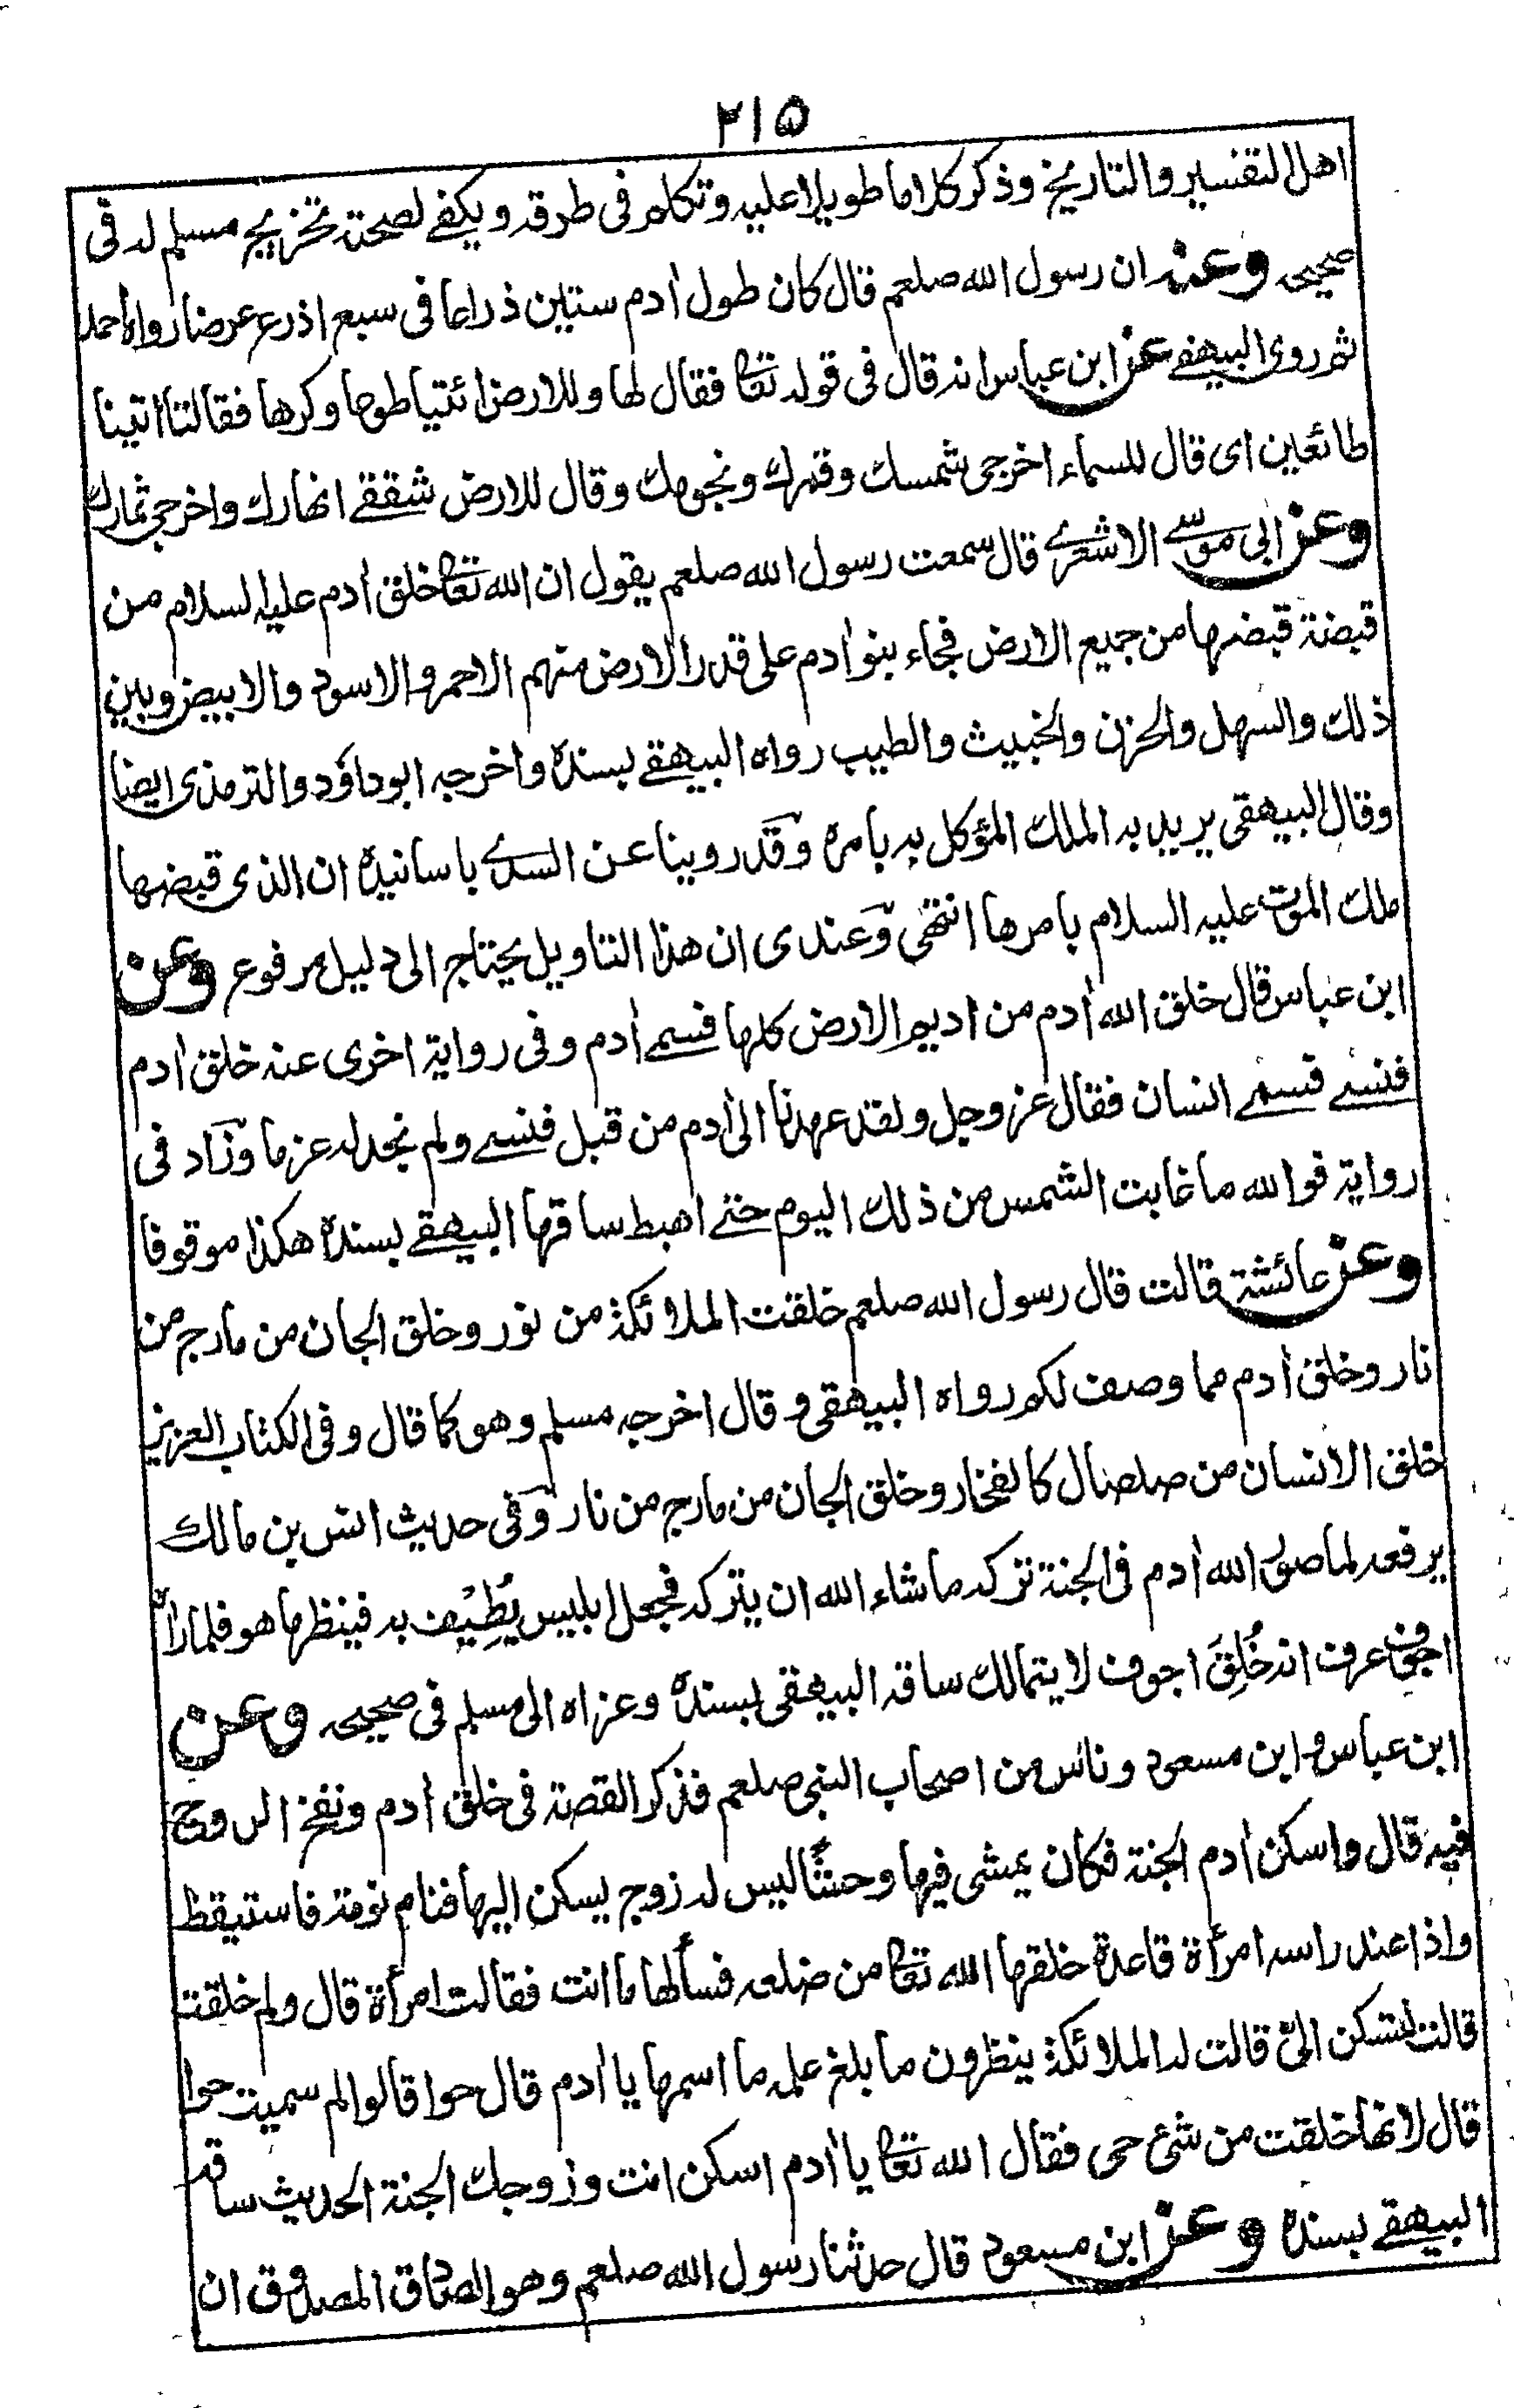 ٢١٥
اهل التفسير والتاريخ وذكر كلاما طويلا عليه وتكلم فى طرقه ويكفے لصحته تخريج مسلم له فى
صحيحه وعنه ان رسول الله صلعم قال كان طول اٰدم ستين ذراعا فى سبع اذرع عرضا رواه احمد
ثم روى البيهقے عن ابن عباس انه قال فى قوله تعالٰى فقال لها وللارض ائتيا طوعا وكرها فقالتا اتينا
طائعين اى قال للسماء اخرجى شمسك وقمرك ونجومك وقال للارض شققے انهارك واخرجى ثمارك
وعن ابى موسے الاشعرے قال سمعت رسول الله صلعم يقول ان الله تعالٰى خلق اٰدم عليه السلام من
قبضة قبضها من جميع الارض فجاء بنو اٰدم على قدر الارض منهم الاحمر والاسود والابيض وبين
ذلك والسهل والحزن والخبيث والطيب رواه البيهقے بسنده واخرجه ابوداؤد والترمذى ايضا
وقال البيهقى يريد به الملك المؤكل به بامره وقد روينا عن السدے باسانيده ان الذى قبضها
ملك الموت عليه السلام بامرها انتهى وعندى ان هذا التاويل يحتاج الى دليل مرفوع وعن
ابن عباس قال خلق الله اٰدم من اديم الارض كلها فسمے اٰدم وفى رواية اخرى عنه خلق اٰدم
فنسے فسمے انسان فقال عز وجل ولقد عهدنا الى اٰدم من قبل فنسے ولم نجد له عزما وزاد فى
رواية فوالله ما غابت الشمس من ذلك اليوم حتے اهبط ساقها البيهقے بسنده هكذا موقوفا
وعن عائشة قالت قال رسول الله صلعم خلقت الملائكة من نور وخلق الجان من مارج من
نار وخلق اٰدم مما وصف لكم رواه البيهقى وقال اخرجه مسلم وهو كما قال وفى الكتاب العزيز
خلق الانسان من صلصال كالفخار وخلق الجان من مارج من نار وفى حديث انس بن مالك
يرفعه لما صور الله اٰدم فى الجنة تركه ما شاء الله ان يتركه فجعل ابليس يُطِيْف به فينظر ما هو فلما راٰه
اجوف عرف انه خُلِقَ اجوف لا يتمالك ساقه البيهقى بسنده وعزاه الى مسلم فى صحيحه وعن
ابن عباس وابن مسعود وناس من اصحاب النبى صلعم فذكر القصة فى خلق اٰدم ونفخ الروح
فيه قال واسكن اٰدم الجنة فكان يمشى فيها وحشًا ليس له زوج يسكن اليها فنام نومة فاستيقظ
واذا عند راسه امرأة قاعدة خلقها الله تعالٰى من ضلعه فسألها ما انت فقالت امرأة قال ولم خلقت
قالت لتسكن الىّ قالت له الملائكة ينظرون ما بلغ علمه ما اسمها يا اٰدم قال حوا قالوا لم سميت حوا
قال لانها خلقت من شئ حى فقال الله تعالٰى يا اٰدم اسكن انت وزوجك الجنة الحديث ساقه
البيهقے بسنده وعن ابن مسعود قال حدثنا رسول الله صلعم وهو الصادق المصدوق ان